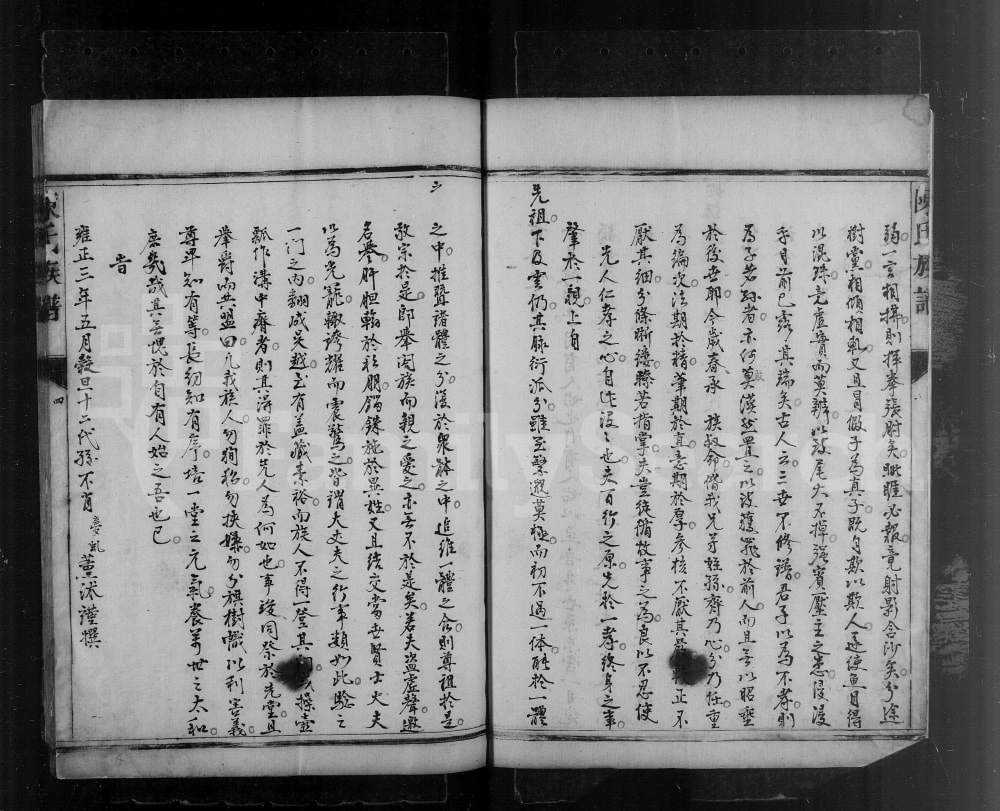 陳氏族譜
弱一言相拂則揮拳張肘矣睚眦必報竟射影含沙矣分途
樹黨相傾相軋又且冒假子為真子既自欺以欺人遂使魚目得
以混珠竟虛實而莫辨以致尾大不掉強賓壓主之患浸浸
乎目前已露其端矣古人云三世不修譜君子以為不孝則
為子若孫者亦何敢莫漠然置之以彼獲罪於前人而且無以昭垂
於後世耶今歲春承 族叔命偕我兄弟姪孫齊乃心分乃任重
為編次法期於精筆期於直意期於厚參核不厭其
厭其細分條晰縷瞭若指掌夫豈徒循故事之為良以不忍使
先人仁孝之心自作沒沒也夫百行之原先於一孝終身之事
肇於一親上自
先祖下及雲仍其脉衍派分雖至繁遐莫極而初不過一体由於一體
之中推暨諸體之分後於眾體之中追維一體之合則尊祖於是
敬宗於是即舉闔族而親之愛之亦無不於是矣若夫盜虛聲邀
名譽肝胆輸於私朋錙銖施於異姓又且結交當世賢士大夫
以為光寵輙誇耀而震驚之皆謂大丈夫之行事類如此驗之
一門之內翻成吳越至有蓋藏素裕而族人不得一登其
瓢作溝中瘠者則其得罪於先人為何如也事竣同祭於先堂且
舉爵而共盟曰凡我族人勿狥私勿挾嫌勿分旗樹幟以利害義
尊卑知有等長幼知有序培一堂之元氣養萬世之太和
庶幾哉其無愧於自有人始之吾也已
告
雍正三年五月穀旦十二代孫不肖夢虬薰沐謹撰
陳氏族譜
四